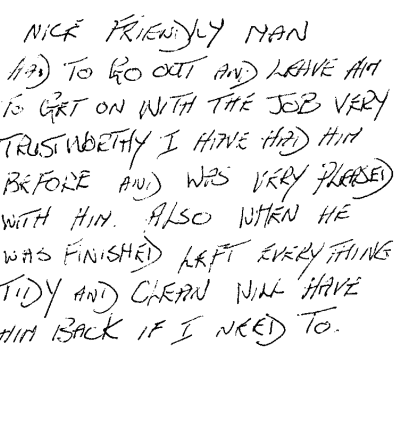 NICE FRIENDLY MAN
HAD TO GO OUT AND LEAVE HIM
TO GET ON WITH THE JOB VERY
TRUSTWORTHY I HAVE HAD HIM
BEFORE AND WAS VERY PLEASED
WITH HIM. ALSO WHEN HE
WAS FINISHED LEFT EVERYTHING
TIDY AND CLEAN WILL HAVE
HIM BACK IF I NEED TO.